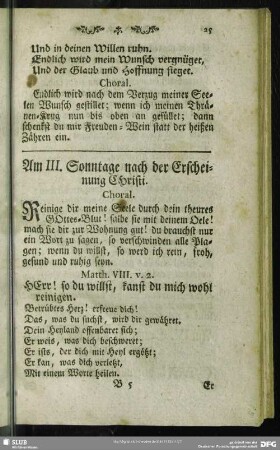 25
Und in deinen Willen ruhn.
Endlich wird mein Wunsch vergnüget,
Und der Glaub und Hoffnung sieget.
Choral.
Endlich wird nach dem Verzug meiner See-
len Wunsch gestillet; wenn ich meinen Thrä-
nen-Krug nun bis oben an gefüllet; dann
schenkst du mir Freuden-Wein statt der heißen
Zähren ein.
Am III. Sonntage nach der Erschei-
nung CHristi.
Choral.
Reinige dir meine Seele durch dein theures
GOttes-Blut! salbe sie mit deinem Oele!
mach sie dir zur Wohnung gut! du brauchst nur
ein Wort zu sagen, so verschwinden alle Pla-
gen; wenn du willst, so werd ich rein, froh,
gesund und ruhig seyn.
Matth. VIII. v. 2.
HErr! so du willst, kanst du mich wohl
reinigen.
Betrübtes Herz! erfreue dich!
Das, was du suchst, wird dir gewähret.
Dein Heyland offenbaret sich;
Er weis, was dich beschweret;
Er ists, der dich mit Heyl ergötzt;
Er kan, was dich verletzt,
Mit einem Worte heilen.
B 5
Er
SLUB